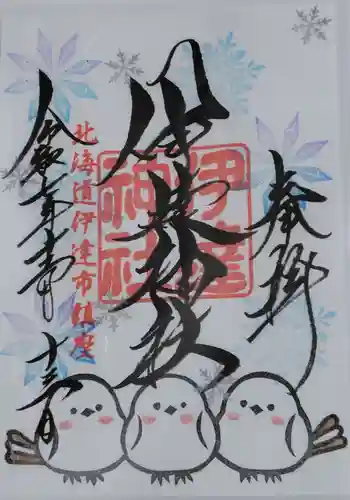 奉拝
伊達神社
伊達
神社
北海道伊達市鎮座
令和